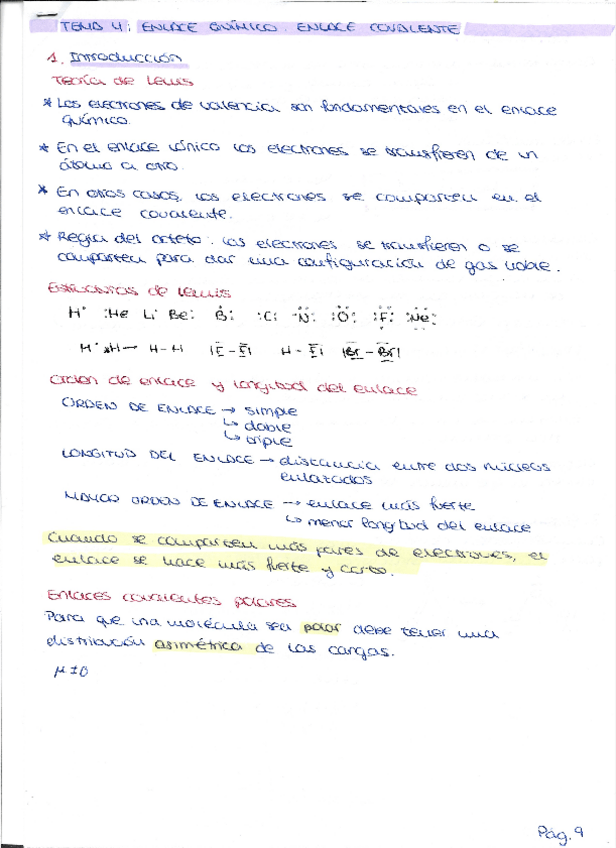 TEMA 4: ENLACE QUÍMICO. ENLACE COVALENTE
1. Introducción
Teoría de Lewis
* Los electrones de valencia son fundamentales en el enlace
químico.
* En el enlace iónico los electrones se transfieren de un
átomo a otro.
* En otros casos, los electrones se comparten en el
enlace covalente.
* Regla del octeto: los electrones se transfieren o se
comparten para dar una configuración de gas noble.
Estructuras de Lewis
H· :He Li· Be: B: :C: N: :O: :F: :Ne:
H· xH → H-H |F-F| H-F| |Br-Br|
Orden de enlace y longitud del enlace
ORDEN DE ENLACE → simple
↳ doble
↳ triple
LONGITUD DEL ENLACE → distancia entre dos núcleos
enlazados
MAYOR ORDEN DE ENLACE → enlace más fuerte
↳ menor longitud del enlace
Cuando se comparten más pares de electrones, el
enlace se hace más fuerte y corto.
Enlaces covalentes polares
Para que una molécula sea polar debe tener una
distribución asimétrica de las cargas.
μ≠0
Pág. 9